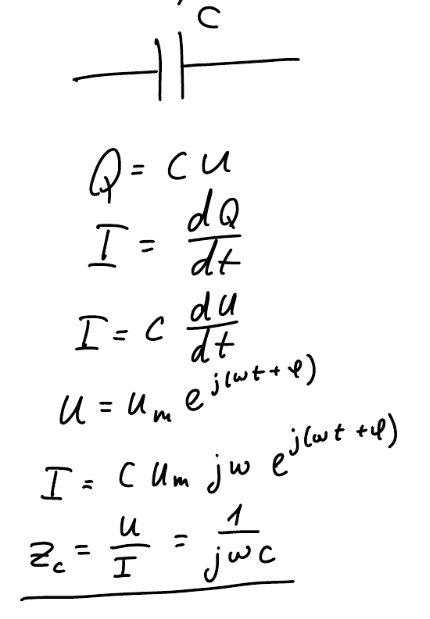 C
Q = C U
I = dQ/dt
I = C dU/dt
U = U_m e^{j(ωt + φ)}
I = C U_m jω e^{j(ωt + φ)}
Z_c = U/I = 1/(jωC)